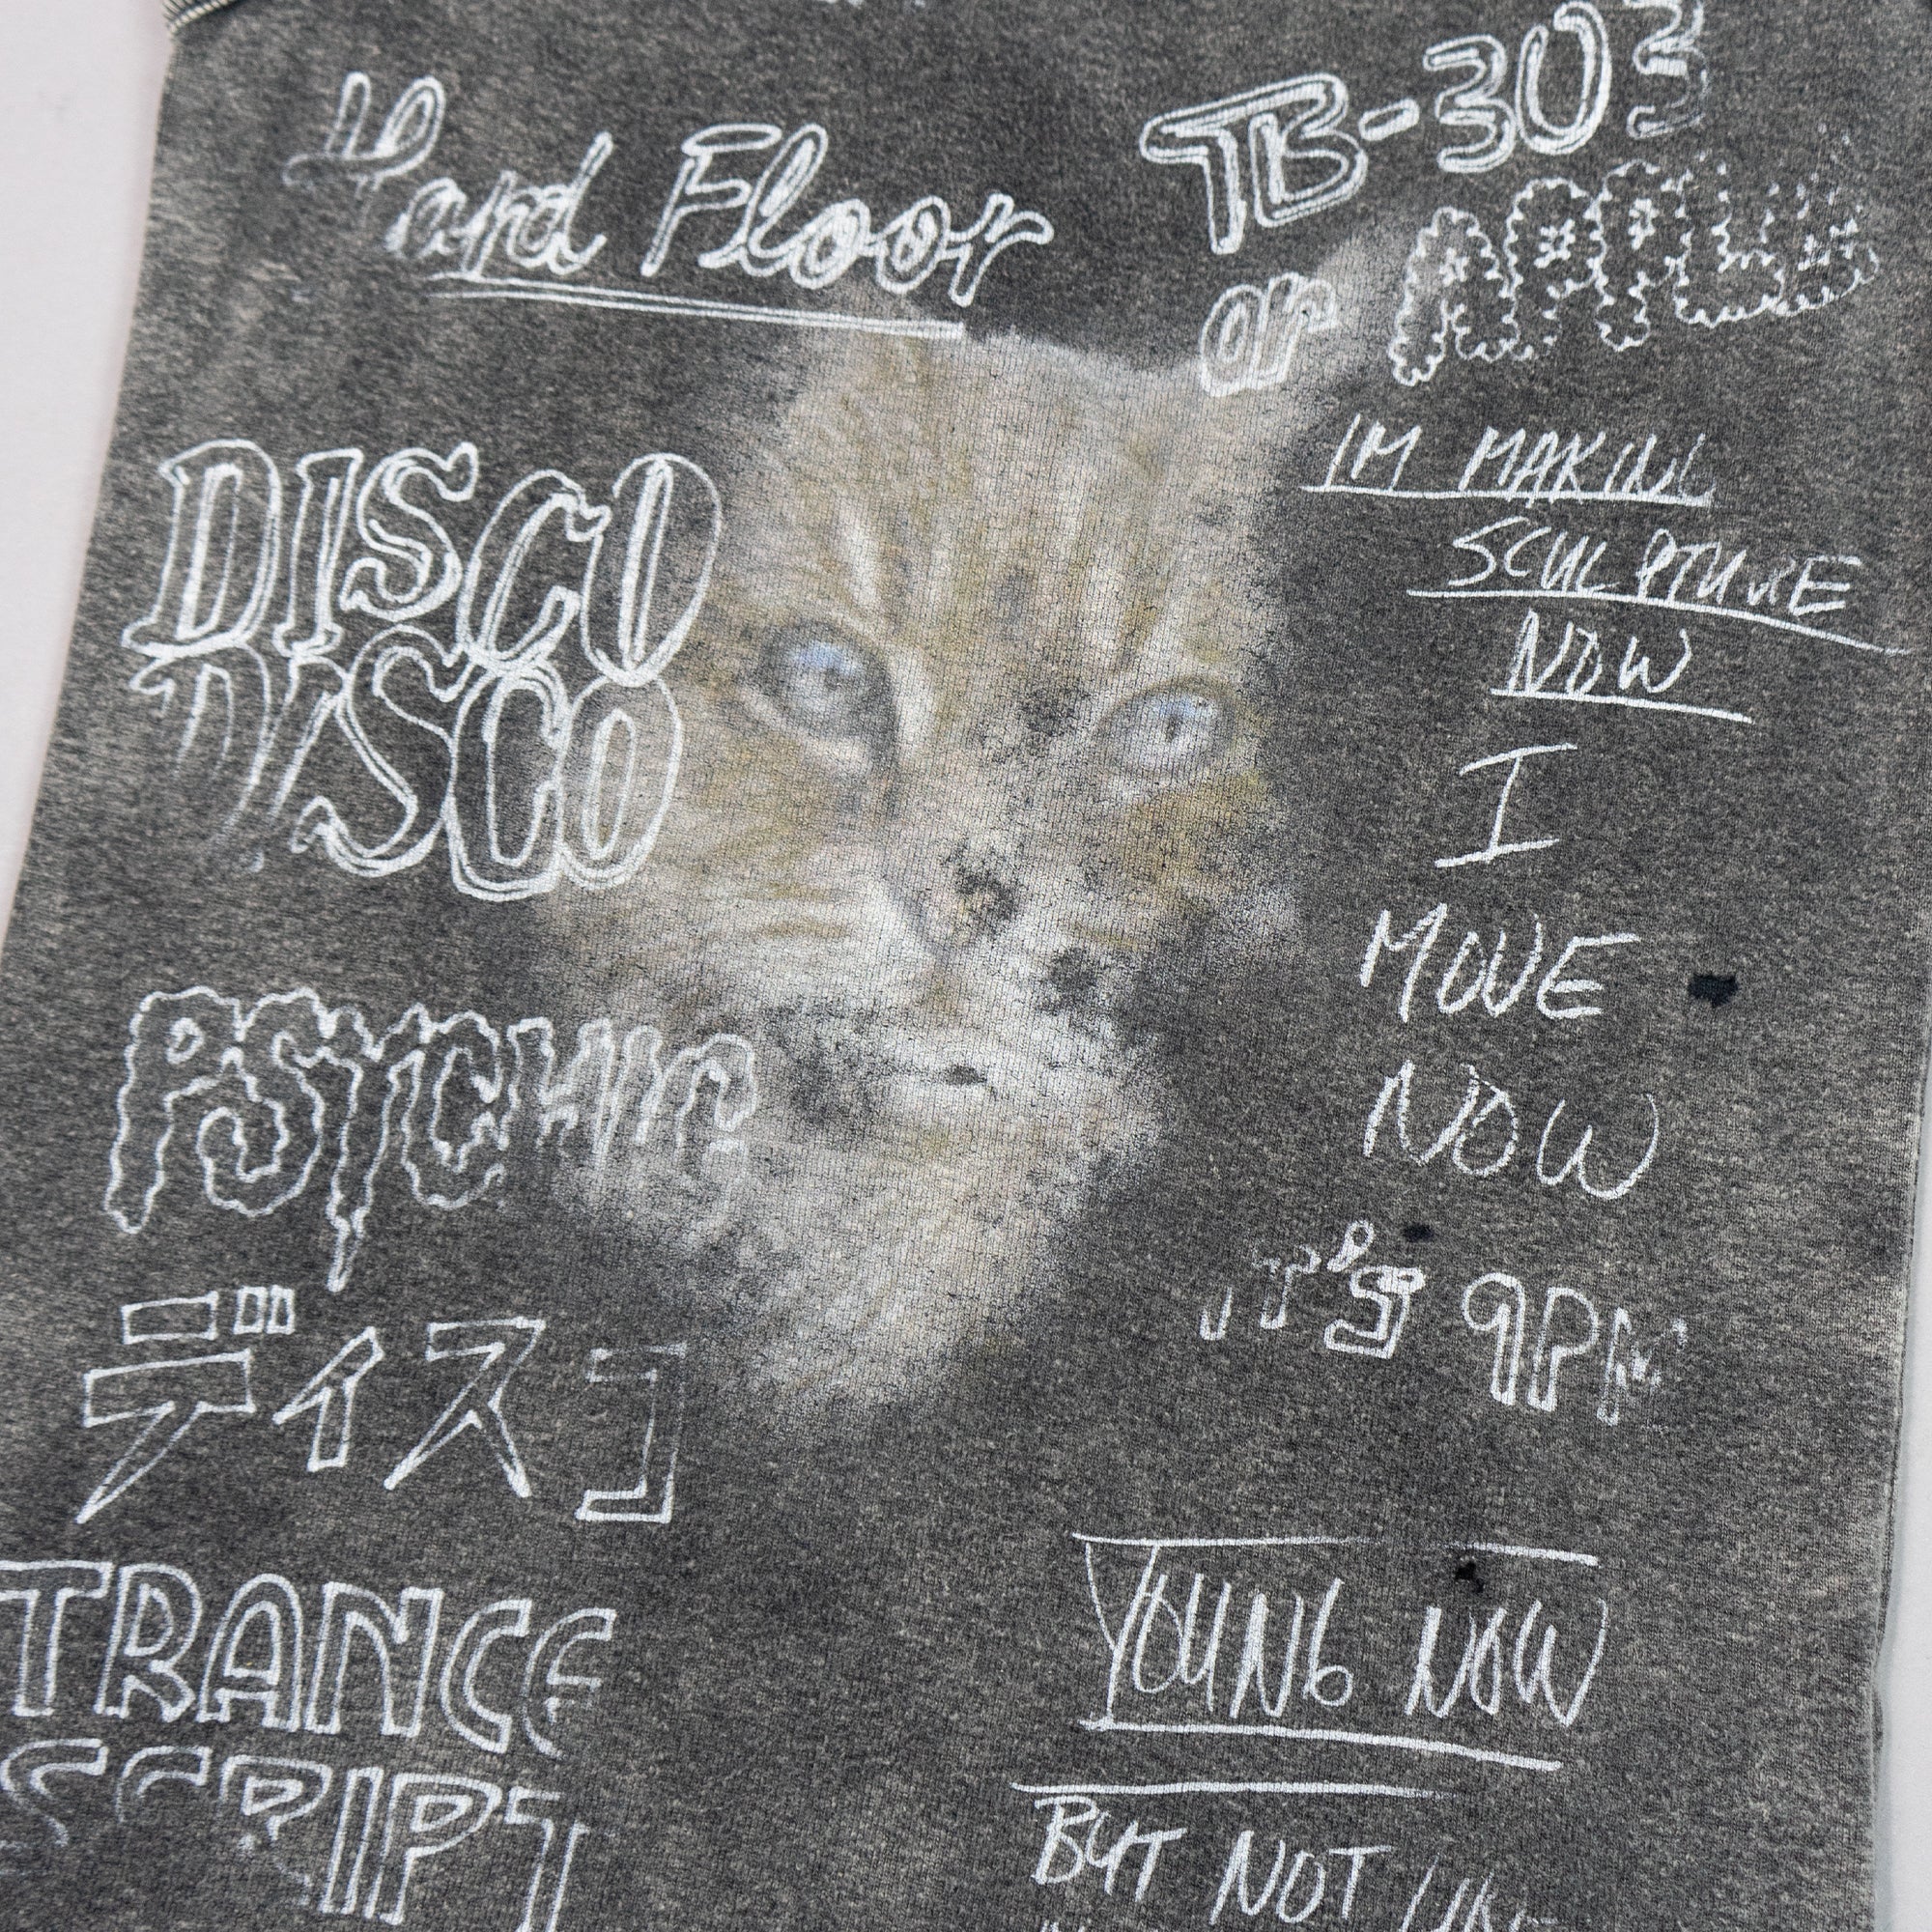 Hard Floor
TB-303
or
DISCO
DISCO
IM MAKING
SCULPTURE
NOW
I
MOVE
NOW
PSYCHIC
IT'S 9PM
ディスコ
TRANCE
SCRIPT
YOUNG NOW
BUT NOT LIKE